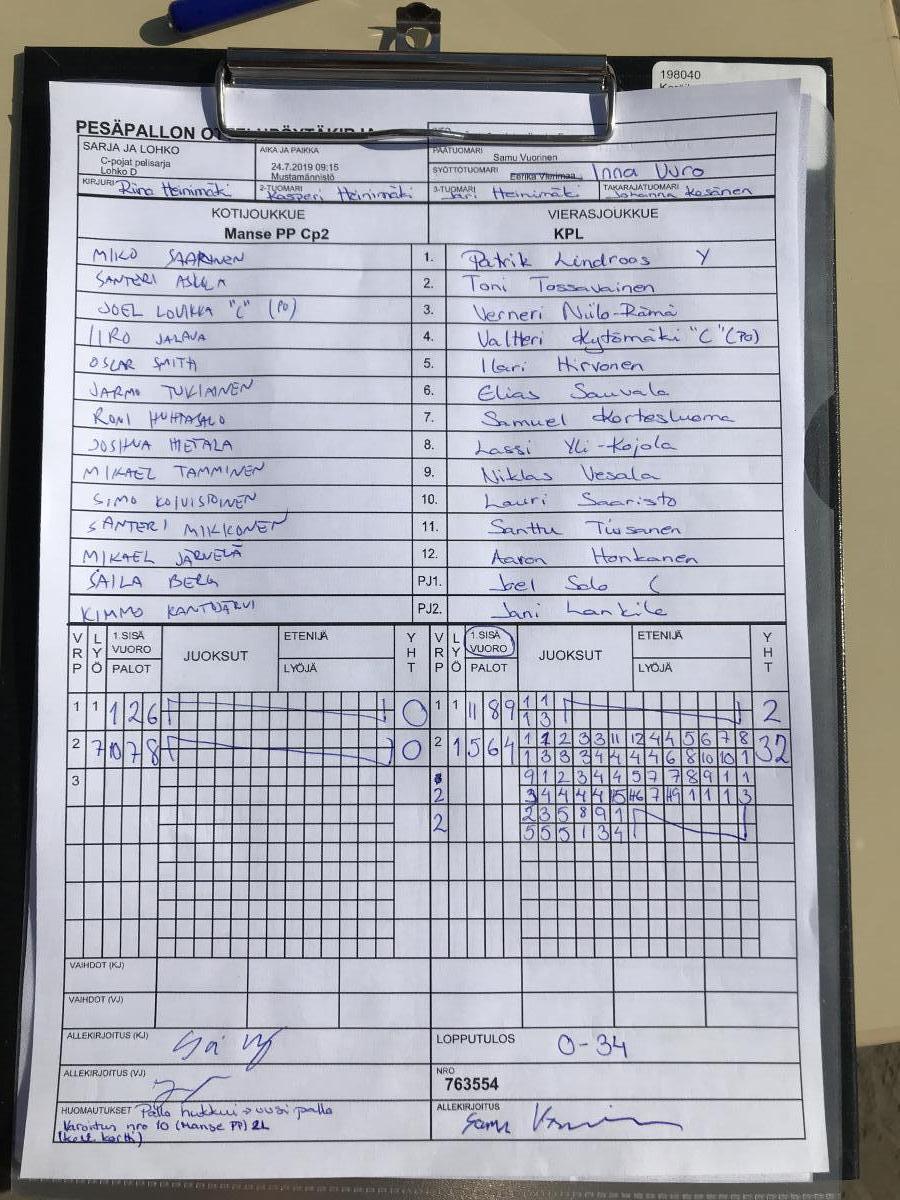 198040
PESÄPALLON
SARJA JA LOHKO
C-pojat pelisarja
Lohko D
AIKA JA PAIKKA
24.7.2019 09:15
Mustamännistö
PÄÄTUOMARI
Samu Vuorinen
SYÖTTÖTUOMARI Inna Vuro
KIRJURI Riina Heinimäki
2-TUOMARI Kasperi Heinimäki
3-TUOMARI Jari Heinimäki
TAKARAJATUOMARI Johanna Kosänen
KOTIJOUKKUE
Manse PP Cp2
VIERASJOUKKUE
KPL
MIKO SAARINEN 1. Patrik Lindroos Y
SANTERI 2. Toni Tossavainen
JOEL LOUKKA "C" (PO) 3. Verneri Niilo-Rämä
IIRO JALAVA 4. Valtteri Kytömäki "C" (PO)
OSCAR SMITH 5. Ilari Hirvonen
JARMO TUKIAINEN 6. Elias Sauvala
RONI HUHTASALO 7. Samuel Kortesluoma
JOSHUA HIETALA 8. Lassi Yli-Kojola
MIKAEL TAMMINEN 9. Niklas Vesala
SIMO KOIVISTOINEN 10. Lauri Saaristo
SANTERI MIKKONEN 11. Santtu Tiusanen
MIKAEL JÄRVELÄ 12. Aaron Honkanen
SAILA BERG PJ1. Joel Salo C
KIMMO KANTOJÄRVI PJ2. Jani Lankila
VRP LYÖ 1.SISÄ VUORO PALOT JUOKSUT ETENIJÄ LYÖJÄ YHT VRP LYÖ 1.SISÄ VUORO PALOT JUOKSUT ETENIJÄ LYÖJÄ YHT
1 1 1 2 6 0 1 1 11 8 9 1 1 2
1 3
2 7 10 7 8 0 2 1 5 6 4 1 1 2 3 3 11 12 4 4 5 6 7 8 32
1 3 3 3 4 4 4 4 6 8 10 10 1
3 9 1 2 3 4 4 5 7 7 8 9 1 1
2
2 2 3 5 8 9 1
5 5 5 1 3 4
VAIHDOT (KJ)
VAIHDOT (VJ)
ALLEKIRJOITUS (KJ)
LOPPUTULOS 0-34
ALLEKIRJOITUS (VJ)
NRO
763554
HUOMAUTUKSET Pallo hukkui → uusi pallo
Varoitus nro 10 (Manse PP) 2L
(kelt. kortti)
ALLEKIRJOITUS
Samu